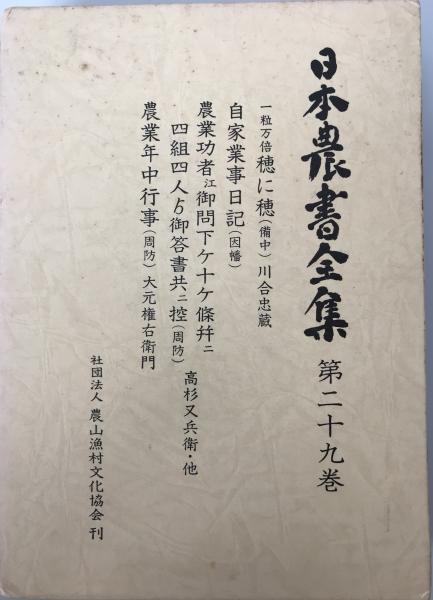 日本農書全集 第二十九巻
一粒万倍 穂に穂(備中)川合忠蔵
自家業事日記(因幡)
農業功者江御問下ケ十ケ條幷ニ
四組四人ゟ御答書共ニ控(周防)高杉又兵衛・他
農業年中行事(周防)大元権右衛門
社団法人 農山漁村文化協会 刊